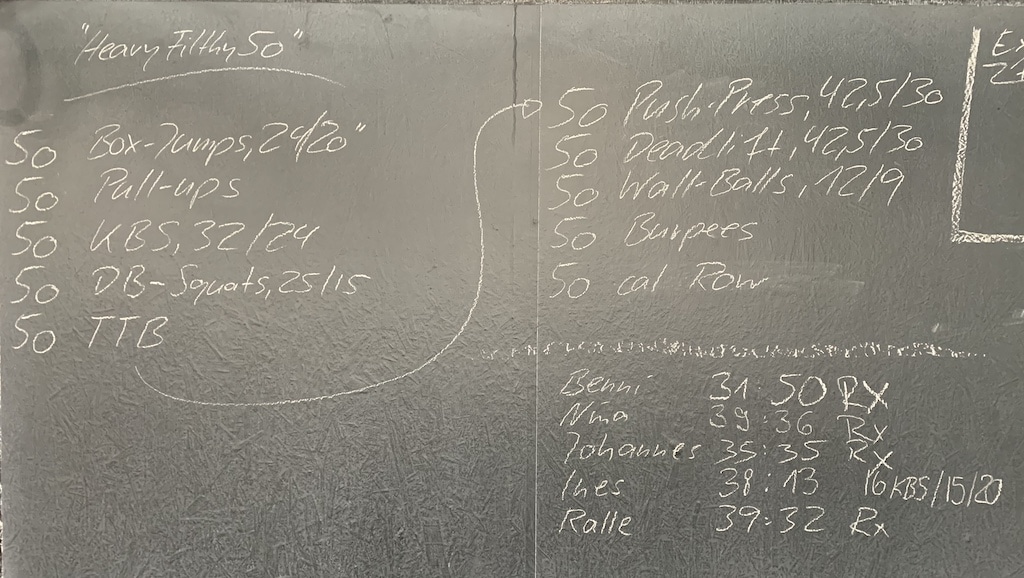 "Heavy Filthy 50"
50 Box-Jumps, 24/20"
50 Pull-ups
50 KBS, 32/24
50 DB-Squats, 25/15
50 TTB
50 Push-Press, 42,5/30
50 Deadlift, 42,5/30
50 Wall-Balls, 12/9
50 Burpees
50 cal Row
Benni 31:50 Rx
Nina 39:36 Rx
Johannes 35:35 Rx
Ines 38:13 16KBS/15/20
Ralle 39:32 Rx